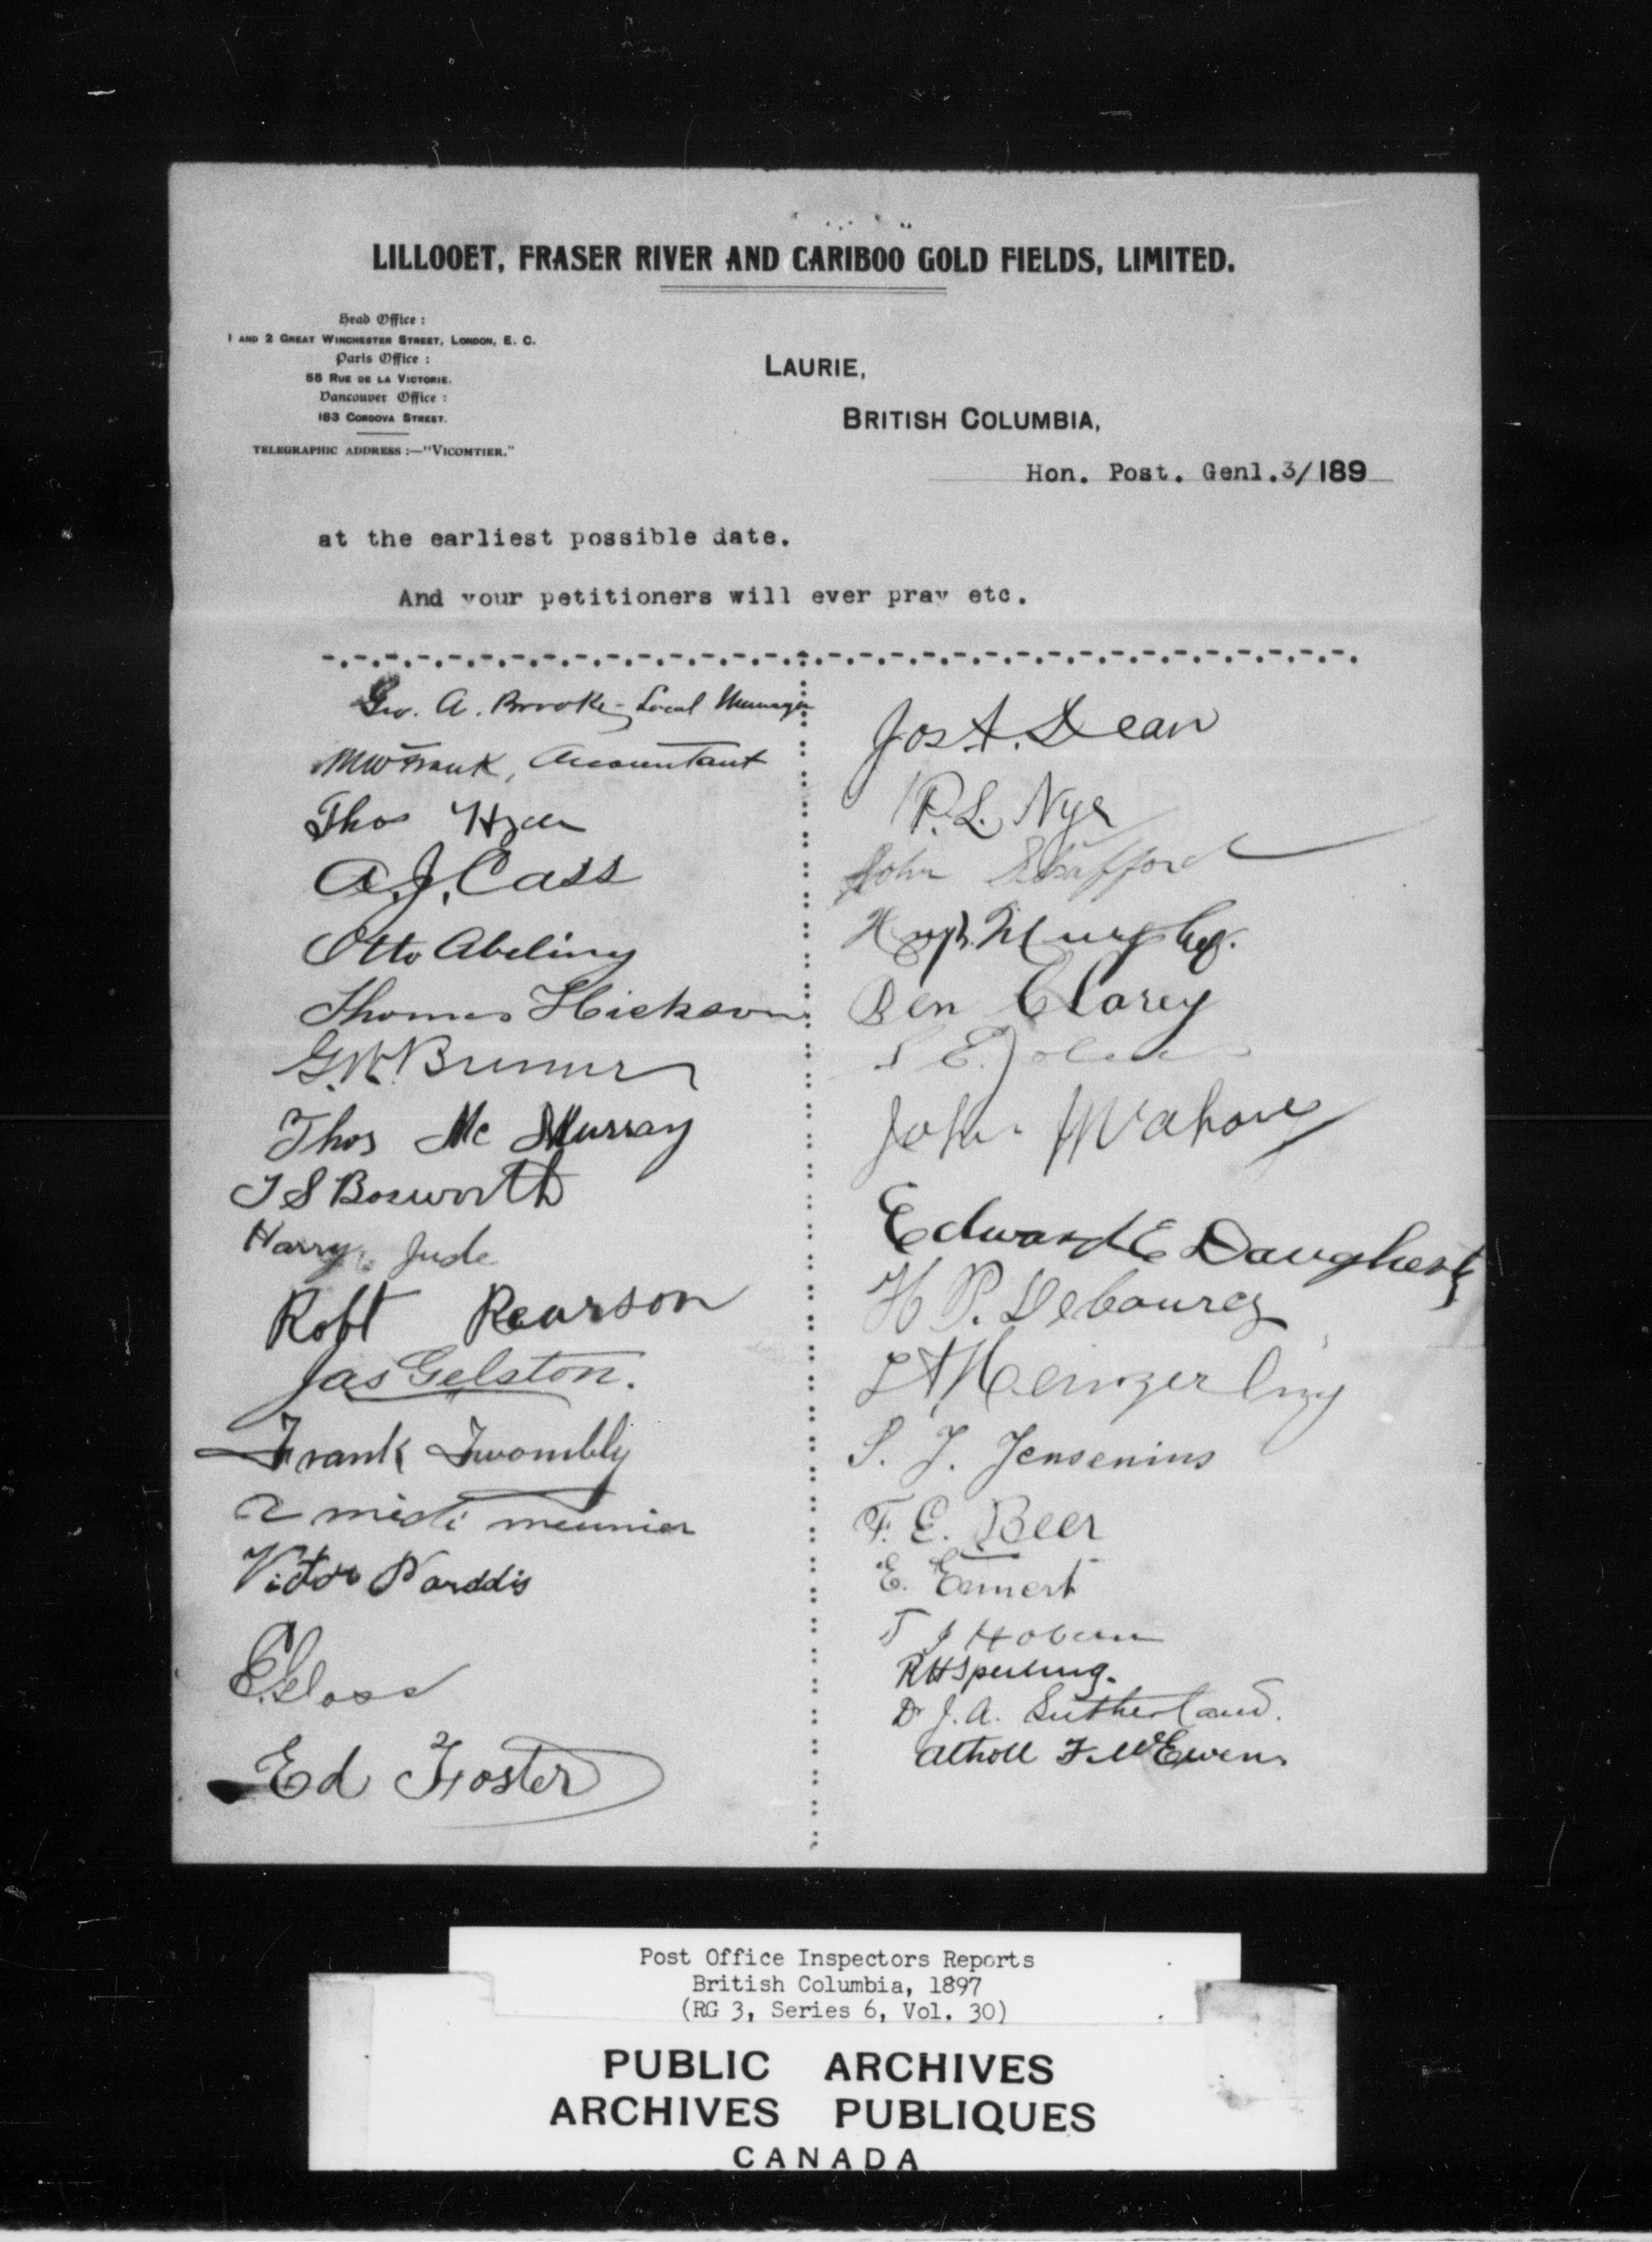 LILLOOET, FRASER RIVER AND CARIBOO GOLD FIELDS, LIMITED.
Head Office :
1 AND 2 GREAT WINCHESTER STREET, LONDON, E. C.
Paris Office :
55 RUE DE LA VICTORIE.
Vancouver Office :
183 CORDOVA STREET.
TELEGRAPHIC ADDRESS :—"VICOMTIER."
LAURIE,
BRITISH COLUMBIA,
Hon. Post. Genl.3/189
at the earliest possible date.
And your petitioners will ever pray etc.
Geo. A. Brooke - Local Manager
MW Frank, Accountant
Thos
A.J. Cass
Otto Abeling
Thomas Hickson
G.W. Brunner
Thos Mc Murray
T S Bosworth
Harry Jude
Robt Pearson
Jas Gelston.
Frank Twombly
meunier
Victor Narddis
E. Gloss
Ed Foster
Jos A. Dean
P. L. Nye
John Stafford
Hugh Murphy.
Ben Clarey
John Mahony
Edward E Daugherty
H P. Debourcy
L A Heinzerling
S. J. Jensenius
F. E. Beer
E. Emmert
T J Hoban
RH Sperling.
Dr J. A. Sutherland.
Atholl F. McEwen.
Post Office Inspectors Reports
British Columbia, 1897
(RG 3, Series 6, Vol. 30)
PUBLIC ARCHIVES
ARCHIVES PUBLIQUES
CANADA